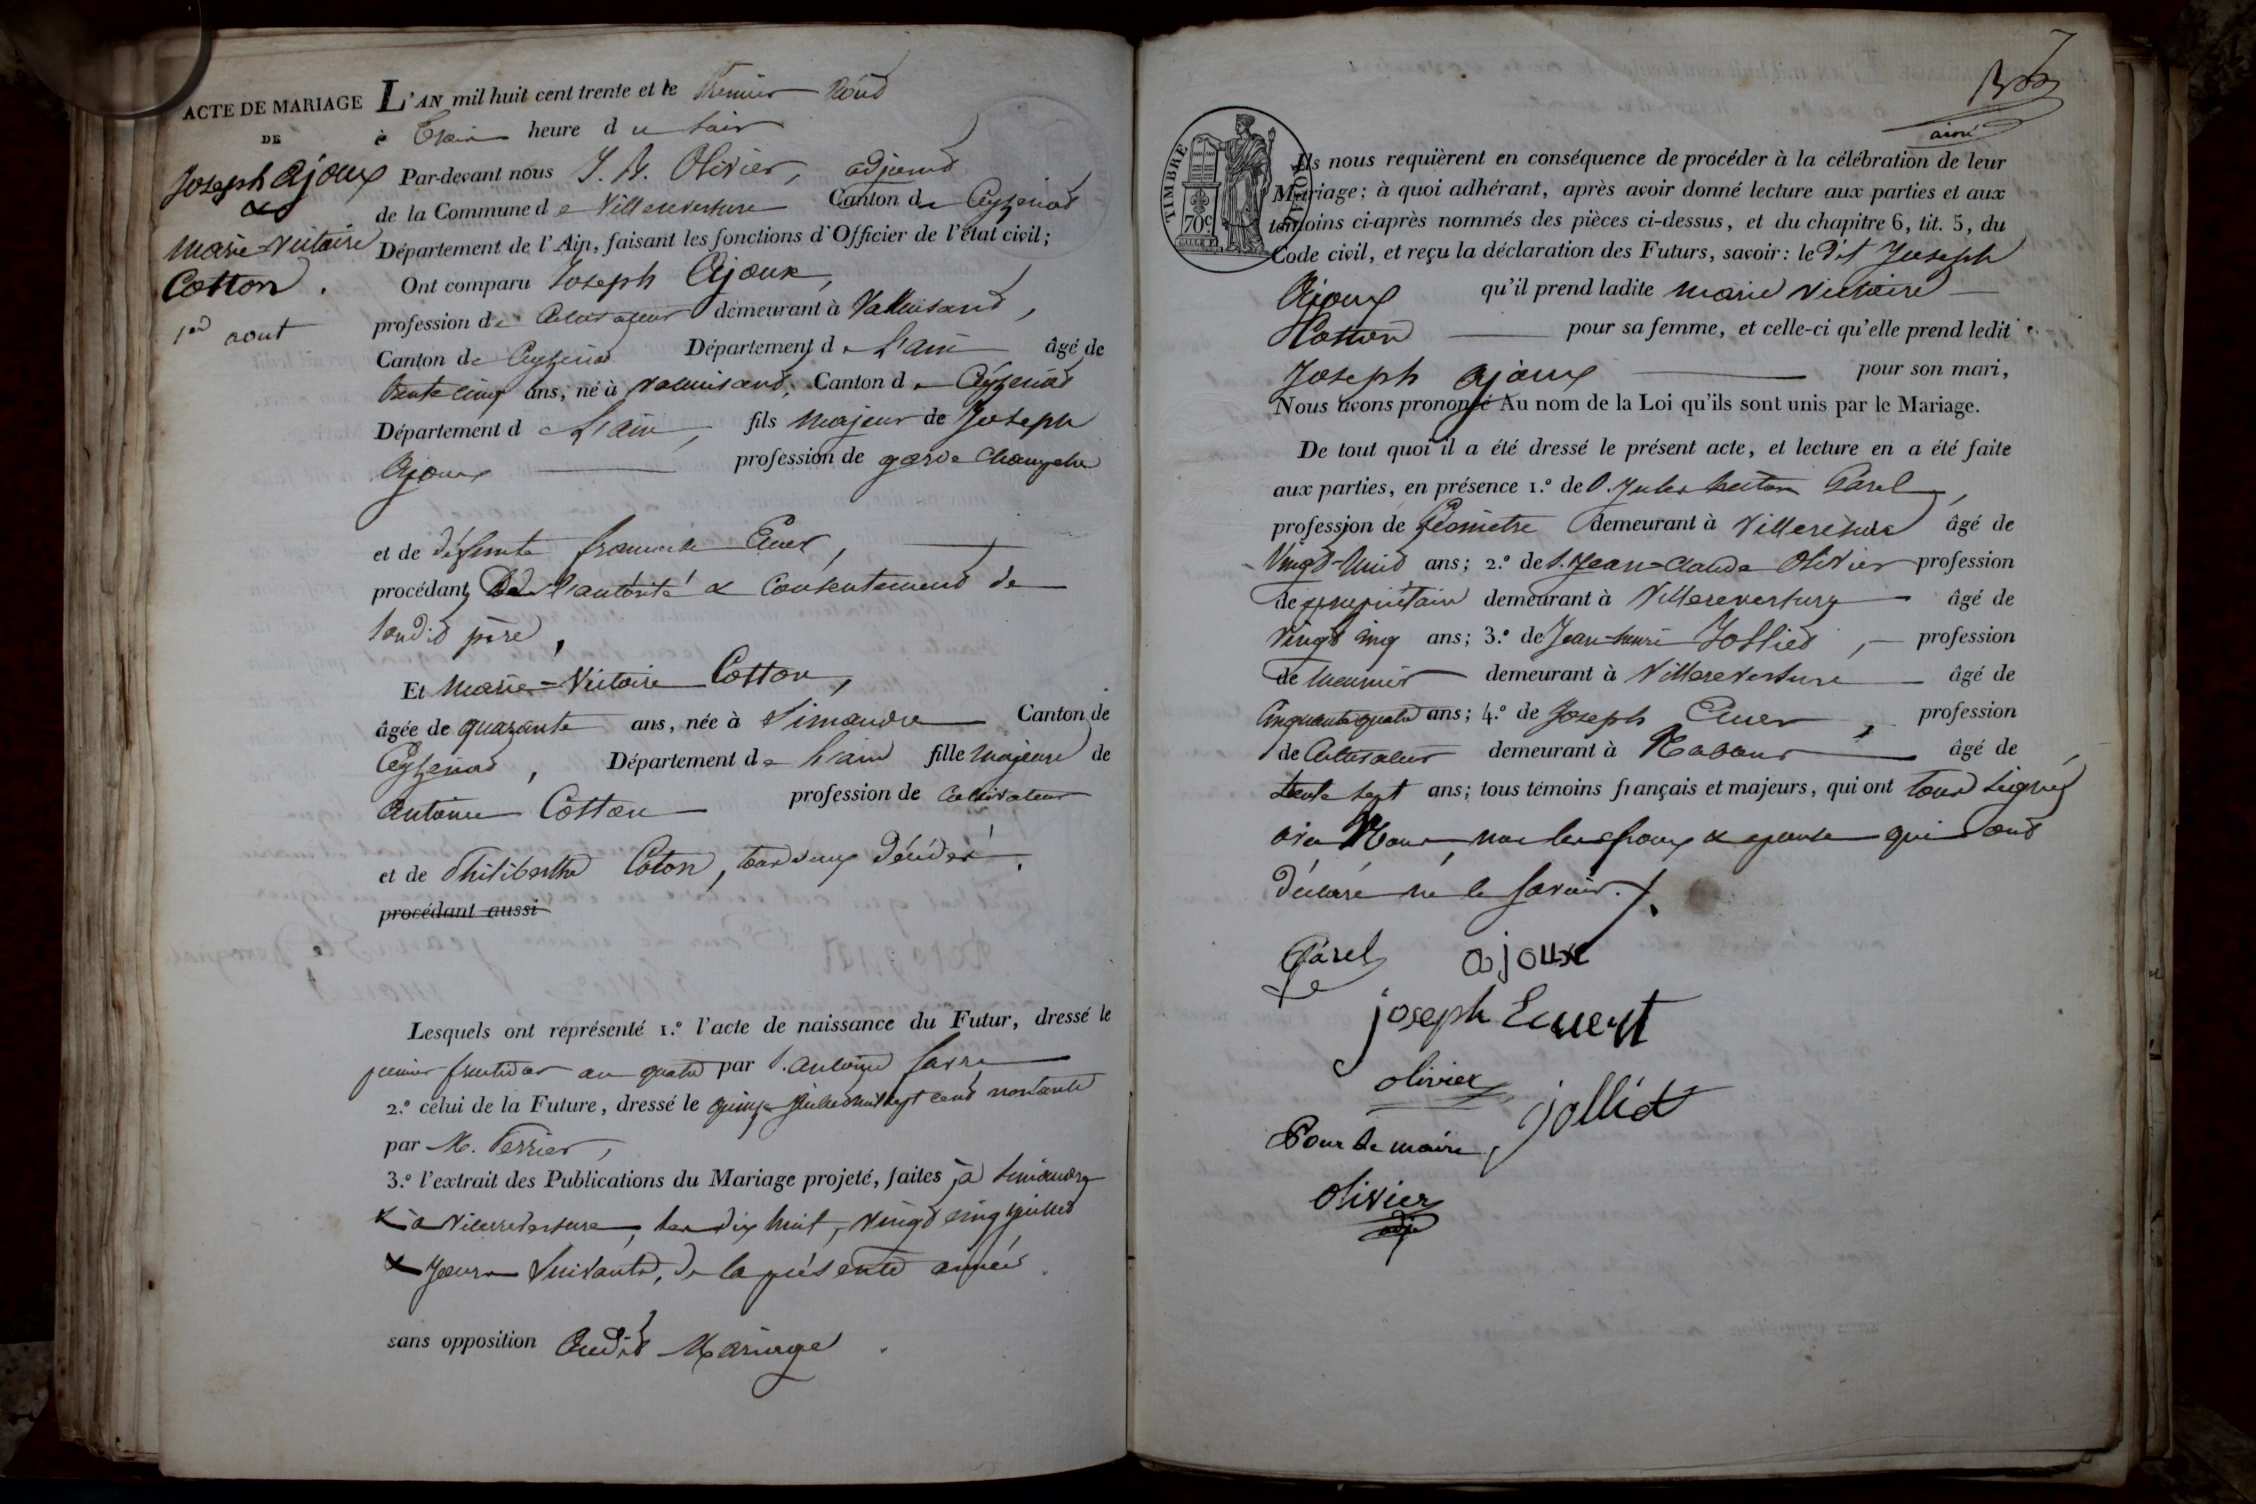 ACTE DE MARIAGE
DE
Joseph Ajoux
&
Marie-Victoire
Cotton.
1er aout
L'AN mil huit cent trente et le premier août
à trois heure du soir
Par-devant nous J. B. Olivier, adjoint
de la Commune de Villereversure Canton de Ceyzeriat
Département de l'Ain, faisant les fonctions d'Officier de l'état civil;
Ont comparu Joseph Ajoux,
profession de Cultivateur demeurant à
Canton de Ceyzeriat Département de L'ain âgé de
trente cinq ans, né à Canton de Ceyzeriat
Département de L'ain, fils majeur de Joseph
Ajoux profession de garde Champetre
et de défunte francoise
procédant de l'autorité & Consentement de
sondit père,
Et Marie-Victoire Cotton,
âgée de quarante ans, née à Simandre Canton de
Ceyzeriat, Département de L'ain fille majeure de
Antoine Cotton profession de Cultivateur
et de Philiberthe Coton, tous deux décédés.
procédant aussi
Lesquels ont représenté 1.º l'acte de naissance du Futur, dressé le
premier fructidor an quatre par S. Antoine
2.º celui de la Future, dressé le quinze juillet mil sept cent nonante
par M. Perrier,
3.º l'extrait des Publications du Mariage projeté, faites à Simandre
& à Villereversure, les dix huit, vingt cinq juillet
& jours suivants, de la présente année.
sans opposition Audit Mariage.
TIMBRE ROYAL
70c
Ils nous requièrent en conséquence de procéder à la célébration de leur
Mariage; à quoi adhérant, après avoir donné lecture aux parties et aux
témoins ci-après nommés des pièces ci-dessus, et du chapitre 6, tit. 5, du
Code civil, et reçu la déclaration des Futurs, savoir: le dit Joseph
Ajoux qu'il prend ladite marie victoire
Cotton pour sa femme, et celle-ci qu'elle prend ledit
Joseph Ajoux pour son mari,
Nous avons prononcé Au nom de la Loi qu'ils sont unis par le Mariage.
De tout quoi il a été dressé le présent acte, et lecture en a été faite
aux parties, en présence 1.º de S. Jules Parel,
profession de Géomètre demeurant à Villereversure âgé de
Vingt-huit ans; 2.º de S. Jean-Claude Olivier profession
de propriétaire demeurant à Villereversure âgé de
vingt cinq ans; 3.º de Jean-henri Jolliet, profession
de meunier demeurant à Villereversure âgé de
Cinquante quatre ans; 4.º de Joseph profession
de Cultivateur demeurant à âgé de
trente sept ans; tous témoins français et majeurs, qui ont tous signés
avec Nous, non les époux & épouse qui ont
déclaré ne le savoir.
Parel ajoux
joseph Ecuert
olivier
jolliet
Pour le maire,
olivier
adj